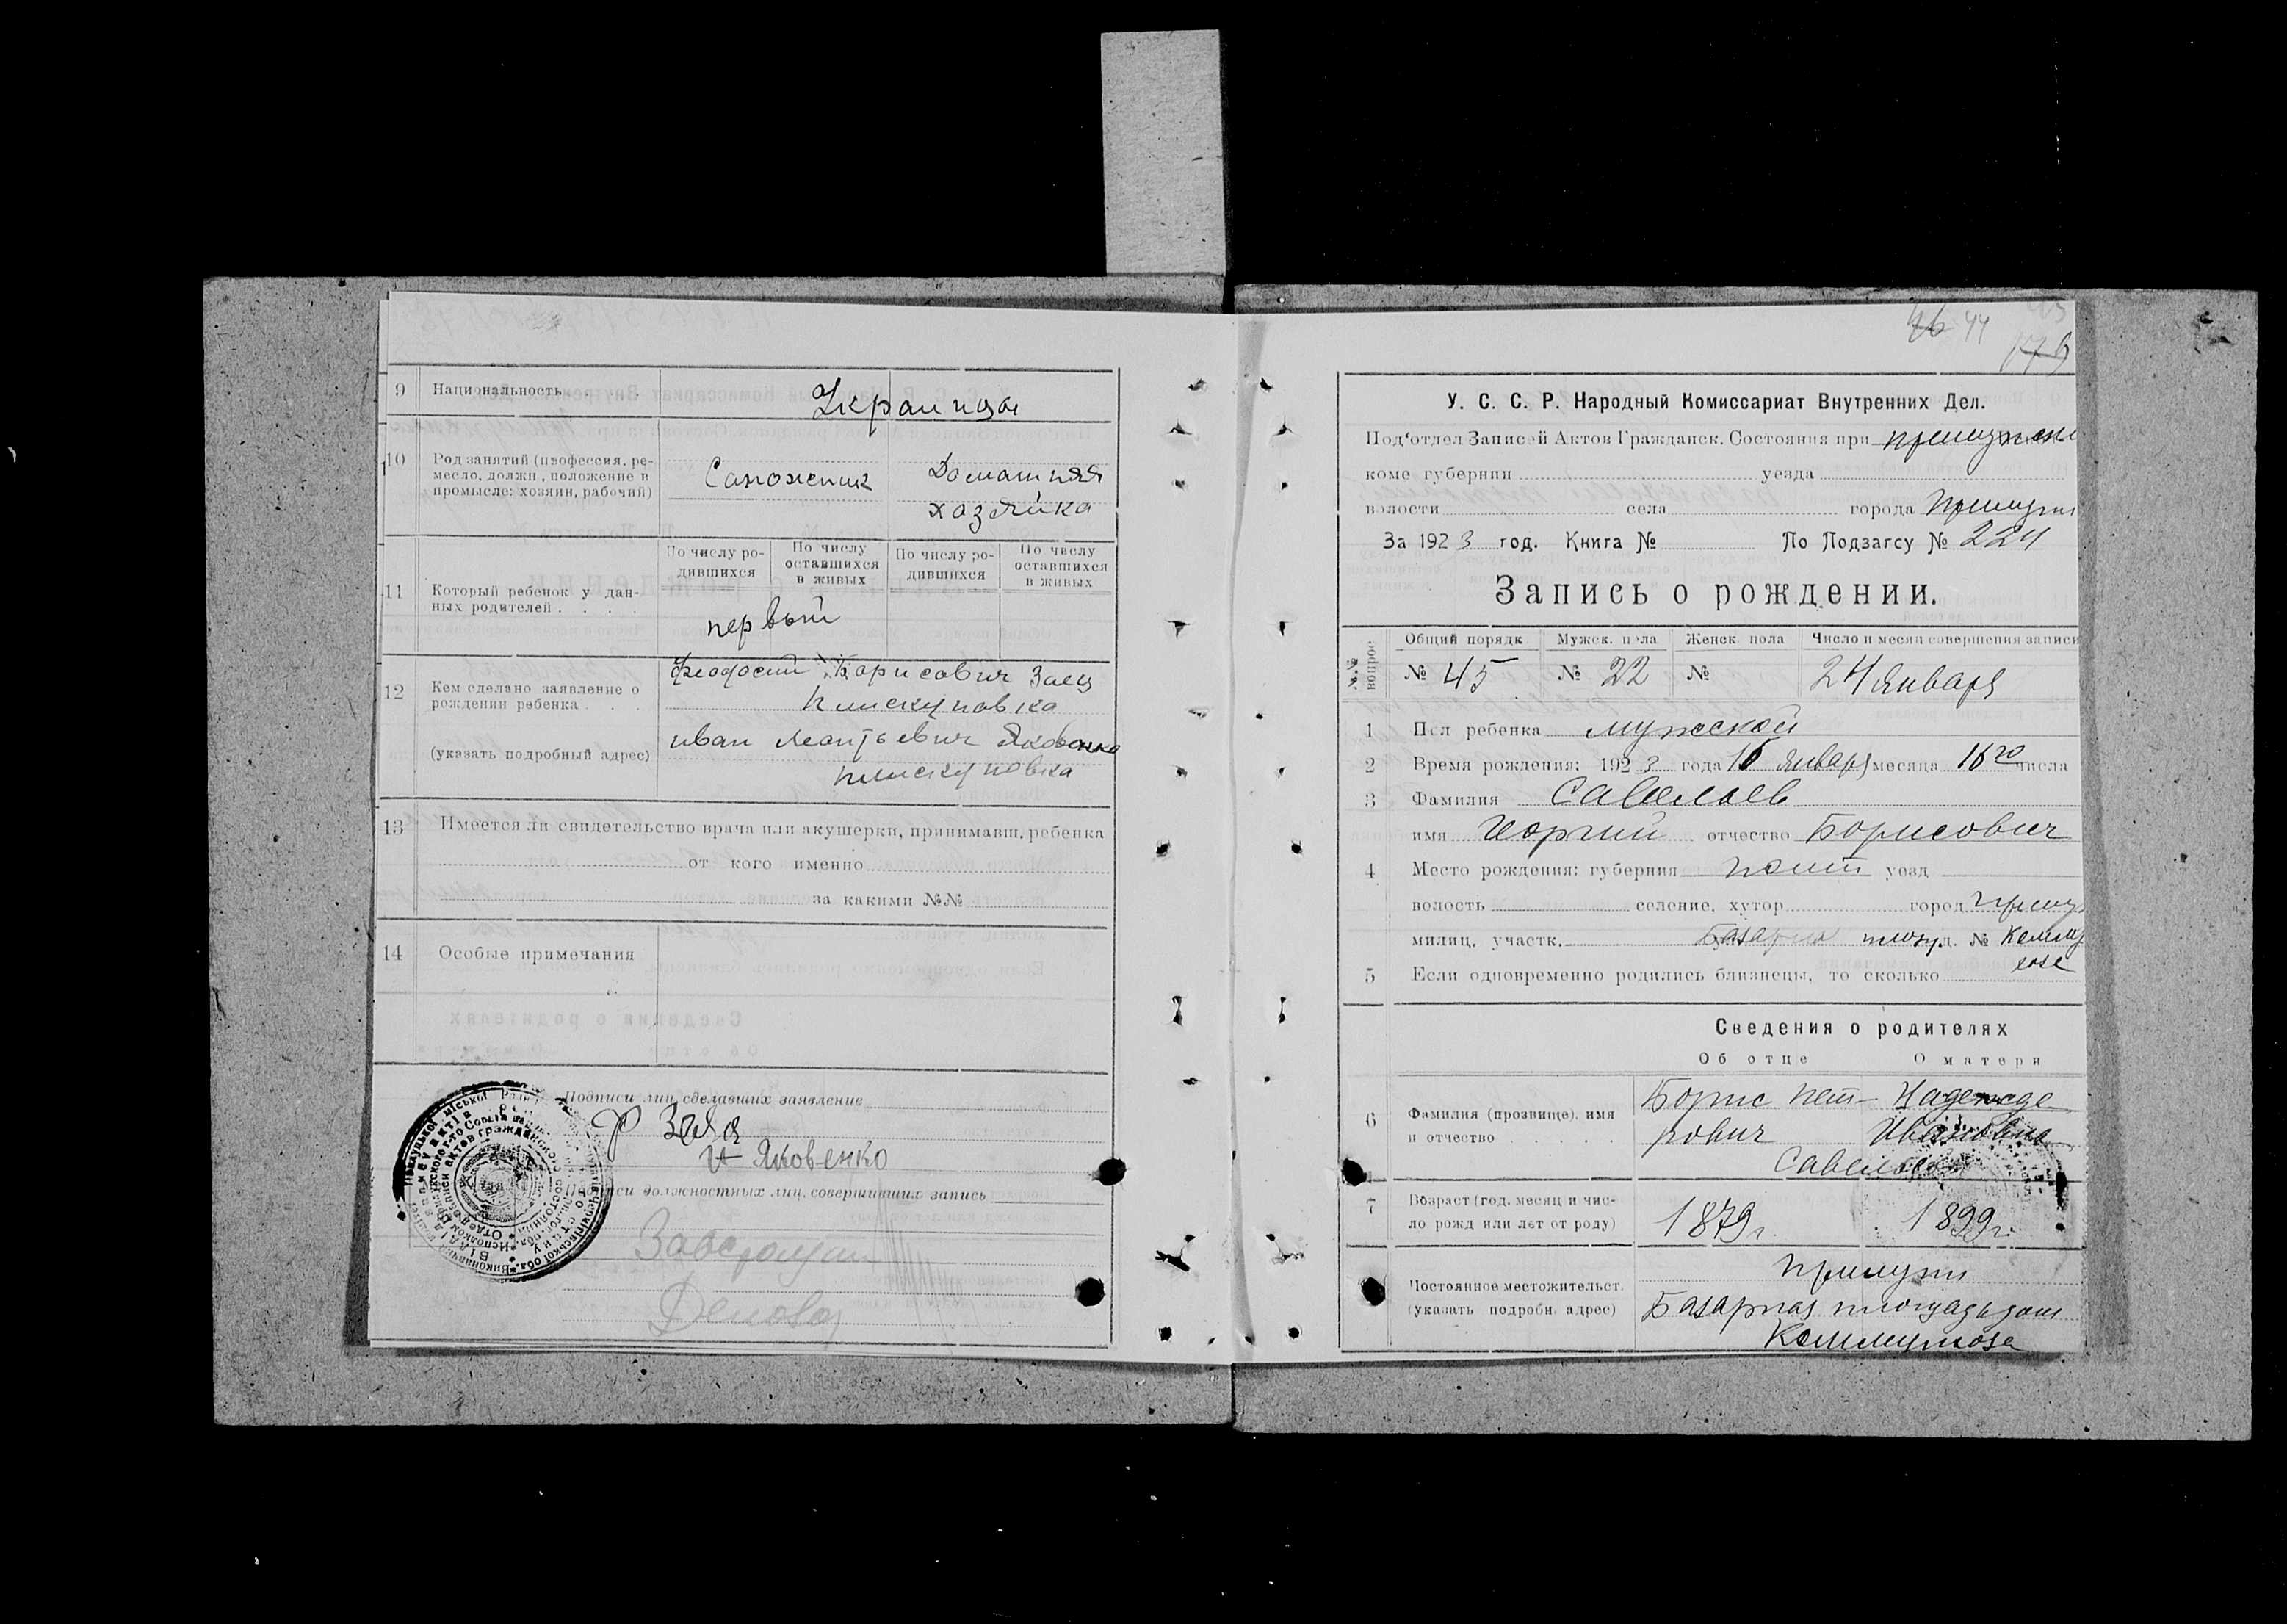 9 Национальность Украинцы
10 Род занятий (профессия, ре-
месло, должн., положение в
промысле: хозяин, рабочий)
Сапожник
Домашняя
хозяйка
11 Который ребенок у дан-
ных родителей
По числу ро-
дившихся
По числу
оставшихся
в живых
По числу ро-
дившихся
По числу
оставшихся
в живых
первый
12 Кем сделано заявление о
рождении ребенка
(указать подробный адрес)
Феодосий Борисович Заец
Плискуновка
Иван Леонтьевич Яковенко
Плискуновка
13 Имеется ли свидетельство врача или акушерки, принимавш. ребенка
от кого именно
за какими №№
14 Особые примечания
Подписи лиц, сделавших заявление
Ф Заяц
И Яковенко
Подписи должностных лиц, совершивших запись
44
У. С. С. Р. Народный Комиссариат Внутренних Дел.
Под'отдел Записей Актов Гражданск. Состояния при
коме губернии уезда
волости села города Прилуки
За 1923 год. Книга № По Подзагсу № 224
Запись о рождении.
№№ вопрос.
Общий порядк Мужск. пола Женск. пола Число и месяц совершения записи
№ 45 № 22 № 24 января
1 Пол ребенка мужской
2 Время рождения: 1923 года 16 января месяца 16го числа
3 Фамилия Савельев
имя Георгий отчество Борисович
4 Место рождения: губерния Полт уезд
волость селение, хутор город Прилуки
милиц. участк. Базарная площ д. № Комму
хозе
5 Если одновременно родились близнецы, то сколько
Сведения о родителях
Об отце О матери
6 Фамилия (прозвище), имя
и отчество
Борис Пет-
рович
Надежда
Ивановна
Савельевы
7 Возраст (год, месяц и чис-
ло рожд или лет от роду)
1879 г. 1899 г.
Постоянное местожительст.
(указать подробн. адрес)
Прилуки
Базарная площадь дом
Коммунхоза